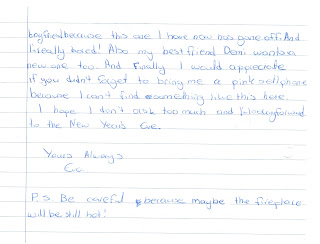 boyfriend because this one I have now has gone off. And
I really bored! Also my best friend Demi wants a
new one too. And finally I would apprecrate
if you didn't forget to bring me a pink cellphone
because I can't find something like this here.
I hope I don't ask too much and I looking forward
to the New Year's Eve.
Yours Always
P.S. Be careful because maybe the fireplace
will be still hot!